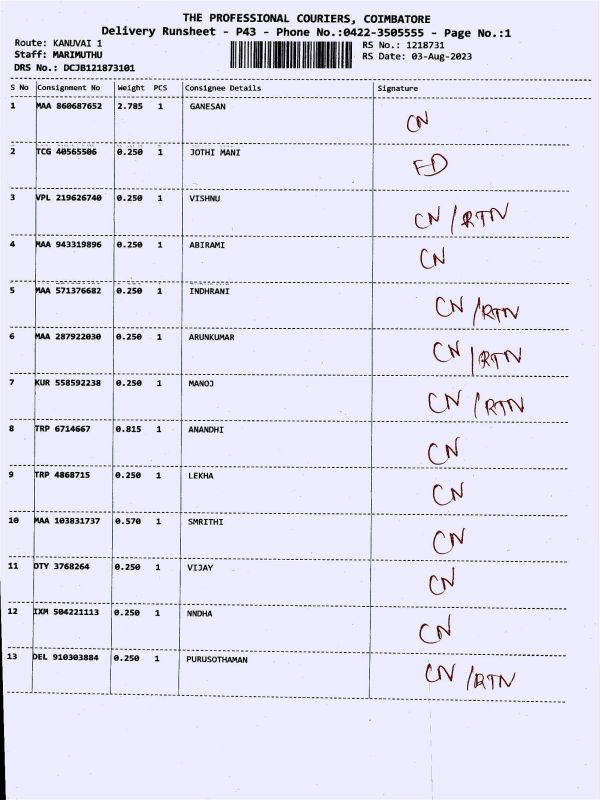 THE PROFESSIONAL COURIERS, COIMBATORE
Delivery Runsheet - P43 - Phone No.:0422-3505555 - Page No.:1
Route: KANUVAI 1 RS No.: 1218731
Staff: MARIMUTHU RS Date: 03-Aug-2023
DRS No.: DCJB121873101
S No Consignment No Weight PCS Consignee Details Signature
1 MAA 860687652 2.785 1 GANESAN CN
2 TCG 40565506 0.250 1 JOTHI MANI FD
3 VPL 219626740 0.250 1 VISHNU CN/RTN
4 MAA 943319896 0.250 1 ABIRAMI CN
5 MAA 571376682 0.250 1 INDHRANI CN/RTN
6 MAA 287922030 0.250 1 ARUNKUMAR CN/RTN
7 KUR 558592238 0.250 1 MANOJ CN/RTN
8 TRP 6714667 0.815 1 ANANDHI CN
9 TRP 4868715 0.250 1 LEKHA CN
10 MAA 103831737 0.570 1 SMRITHI CN
11 OTY 3768264 0.250 1 VIJAY CN
12 IXM 504221113 0.250 1 NNDHA CN
13 DEL 910303884 0.250 1 PURUSOTHAMAN CN/RTN